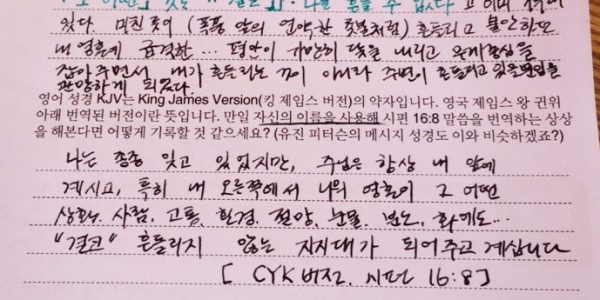 있다. 미친 듯이 (폭풍 앞의 연약한 촛불처럼) 흔들리고 불안하던
내 영혼에 급격한... 평안이 가만히 닻을 내리고 무게중심을
잡아주면서 내가 흔들리는 것이 아니라 주변이 흔들리고 있음을
관망하게 되었다
영어 성경 KJV는 King James Version(킹 제임스 버전)의 약자입니다. 영국 제임스 왕 권위
아래 번역된 버전이란 뜻입니다. 만일 자신의 이름을 사용해 시편 16:8 말씀을 번역하는 상상
을 해본다면 어떻게 기록할 것 같으세요? (유진 피터슨의 메시지 성경도 이와 비슷하겠죠?)
나는 종종 잊고 있었지만, 주님은 항상 내 앞에
계시고, 특히 내 오른쪽에서 나의 영혼이 그 어떤
상황, 사람, 고통, 환경, 절망, 눈물, 분노, 화에도...
"결코" 흔들리지 않는 지지대가 되어주고 계십니다
[ CYK 버전. 시편 16:8 ]